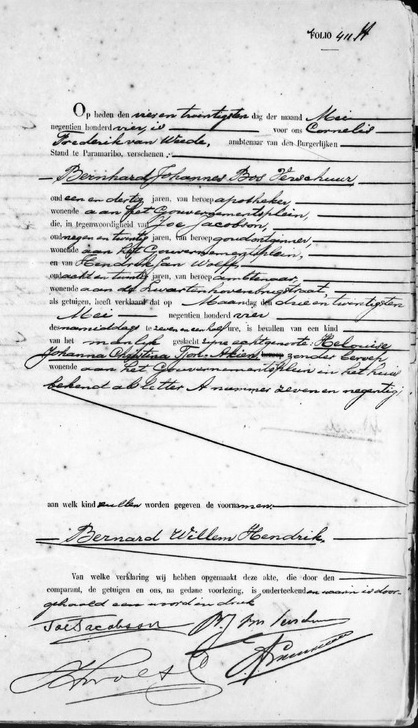 FOLIO 411
Op heden den vier en twintigsten dag der maand Mei
negentien honderd vier, is voor ons Cornelis
Frederik van Weede, ambtenaar van den Burgerlijken
Stand te Paramaribo, verschenen:
Bernhard Johannes Bos Verschuur
oud een en dertig jaren, van beroep apotheker,
wonende aan het Gouvernementsplein,
die, in tegenwoordigheid van Joe Jacobson,
oud negen en twintig jaren, van beroep
wonende aan het Gouvernementsplein,
en van Hendrik Jan Wolff,
oud acht en twintig jaren, van beroep ambtenaar,
wonende aan de Zwartenhovenbrugstraat
als getuigen, heeft verklaard dat op Maandag den drie en twintigsten
Mei negentien honderd vier
des namiddags te zeven en een half ure, is bevallen van een kind
van het manlijk geslacht zijne echtgenoote: Helouise
Johanna Christina zonder beroep
wonende aan het Gouvernementsplein in het huis
bekend als letter A nummer zeven en negentig;
aan welk kind zullen worden gegeven de voornamen:
Bernard Willem Hendrik
Van welke verklaring wij hebben opgemaakt deze akte, die door den
comparant, de getuigen en ons, na gedane voorlezing, is onderteekend en waarin is door
gehaald een woord in druk
Joe Jacobson